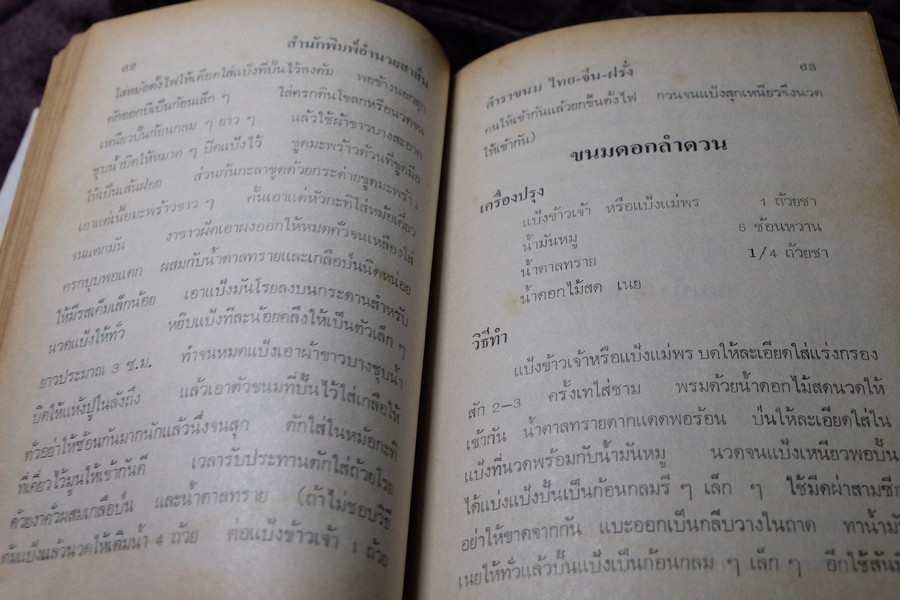 62 สำนักพิมพ์อำนวยสาส์น
ใส่หม้อตั้งไฟให้เดือดใส่แป้งที่ปั้นไว้ลงต้ม พอข้างนอกสุก
ตักออกบิเป็นก้อนเล็ก ๆ ใส่ครกดินโขลกหรือนวดจน
เหนียวปั้นก้อนกลม ๆ ยาว ๆ แล้วใช้ผ้าขาวบางสะอาด
ชุบน้ำบิดให้หมาด ๆ ปิดแป้งไว้ ขูดมะพร้าวด้วยที่ขูดมือ
ให้เป็นเส้นฝอย ส่วนกันกะลาขูดด้วยกระต่ายขูดมะพร้าว
เอาแต่เนื้อมะพร้าวขาว ๆ คั้นเอาแต่หัวกะทิใส่หม้อเคี่ยว
จนแตกมัน งาขาวฝัดเอาผงออกให้หมดคั่วจนเหลืองใส่
ครกบุบพอแตก ผสมกับน้ำตาลทรายและเกลือป่นนิดหน่อย
ให้มีรสเค็มเล็กน้อย เอาแป้งมันโรยลงบนกระดานสำหรับ
นวดแป้งให้ทั่ว หยิบแป้งทีละน้อยคลึงให้เป็นตัวเล็ก ๆ
ยาวประมาณ 3 ซ.ม. ทำจนหมดแป้งเอาผ้าขาวบางชุบน้ำ
บิดให้แห้งปูในลังถึง แล้วเอาตัวขนมที่ปั้นไว้ใส่เกลือให้
ทั่วอย่าให้ซ้อนกันมากนักแล้วนึ่งจนสุก ตักใส่ในหม้อกะทิ
ที่เคี่ยวไว้มูนให้เข้ากันดี เวลารับประทานตักใส่ถ้วยโรย
ด้วยงาคั่วผสมเกลือป่น และน้ำตาลทราย (ถ้าไม่ชอบวิธี
ต้มแป้งแล้วนวดให้เติมน้ำ 4 ถ้วย ต่อแป้งข้าวเจ้า 1 ถ้วย
ตำราขนม ไทย-จีน-ฝรั่ง 63
คนให้เข้ากันแล้วยกขึ้นตั้งไฟ กวนจนแป้งสุกเหนียวจึงนวด
ให้เข้ากัน)
ขนมดอกลำดวน
เครื่องปรุง
แป้งข้าวเจ้า หรือแป้งแม่พร 1 ถ้วยชา
น้ำมันหมู 5 ช้อนหวาน
น้ำตาลทราย 1/4 ถ้วยชา
น้ำดอกไม้สด เนย
วิธีทำ
แป้งข้าวเจ้าหรือแป้งแม่พร บดให้ละเอียดใส่แร่งกรอง
สัก 2-3 ครั้งเทใส่ชาม พรมด้วยน้ำดอกไม้สดนวดให้
เข้ากัน น้ำตาลทรายตากแดดพอร้อน ป่นให้ละเอียดใส่ใน
แป้งที่นวดพร้อมกับน้ำมันหมู นวดจนแป้งเหนียวพอปั้น
ได้แบ่งแป้งปั้นเป็นก้อนกลมรี ๆ เล็ก ๆ ใช้มีดผ่าสามซีก
อย่าให้ขาดจากกัน แบะออกเป็นกลีบวางในถาด ทาน้ำมัน
เนยให้ทั่วแล้วปั้นแป้งเป็นก้อนกลม ๆ เล็ก ๆ อีกใช้สันมี